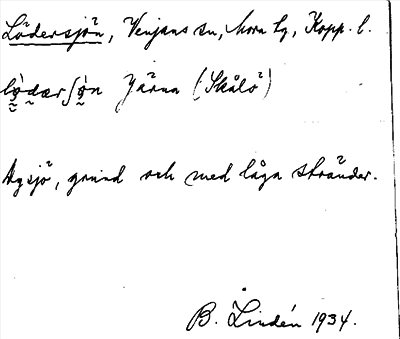 Lödersjön, Venjans sn, Mora tg, Kopp. l.
lø̀dærʃø̀n Järna (Skålö)
Ägsjö, grund och med låga stränder.
B. Lindén 1934.